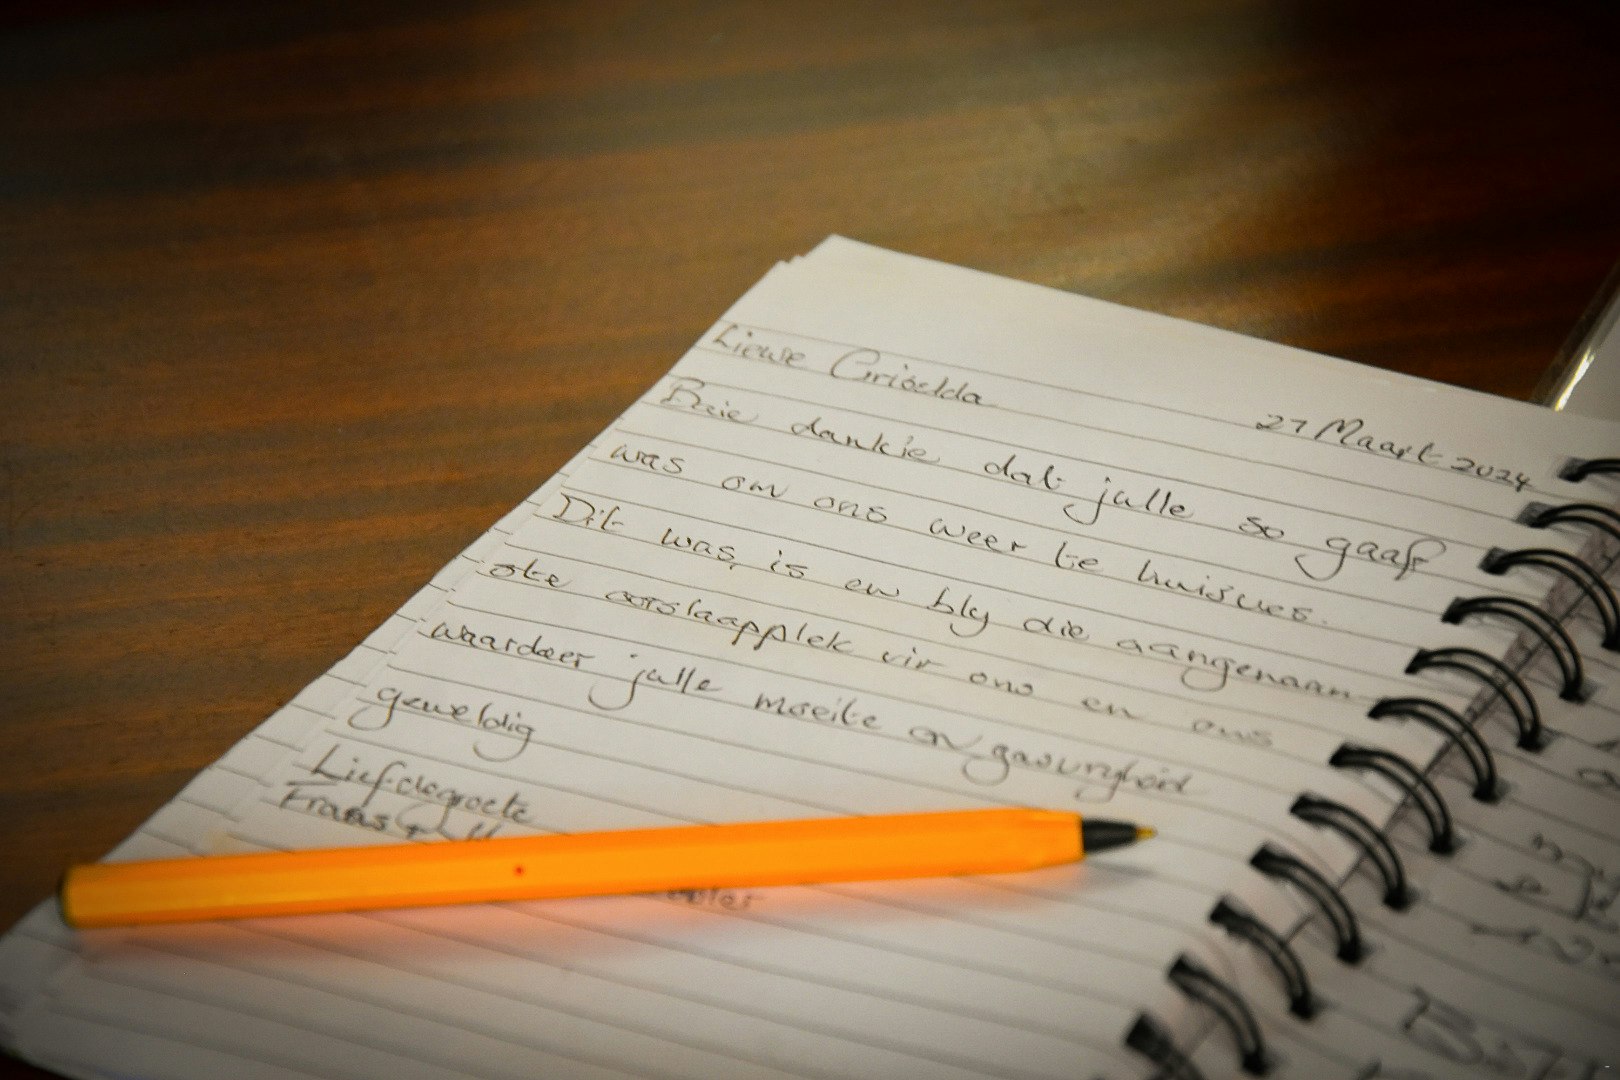 Liewe Griselda
27 Maart 2024
Baie dankie dat julle so gaaf
was om ons weer te huisves.
Dit was, is en bly die aangenaam
ste oorslaapplek vir ons en ons
waardeer julle moeite en gasvryheid
geweldig
Liefdegroete
Frans &